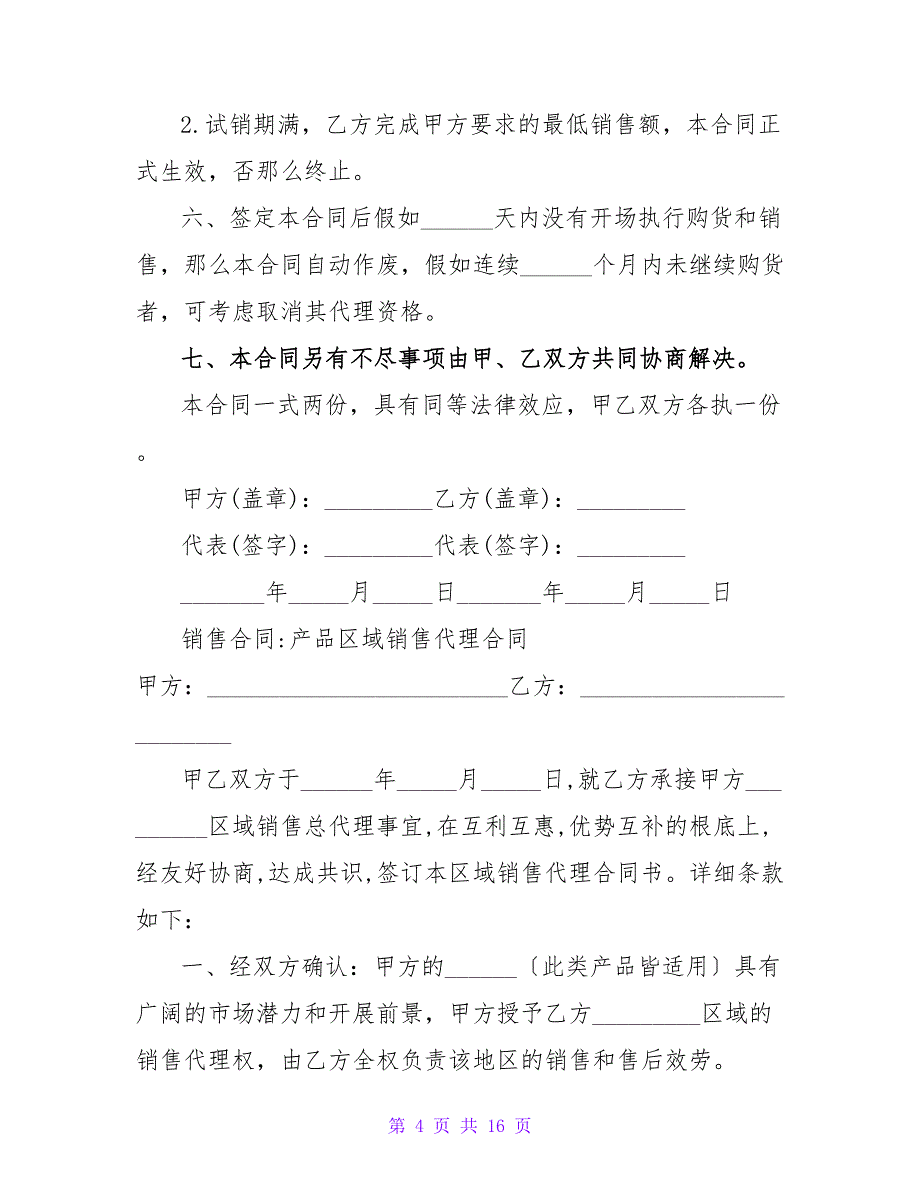 2.试销期满，乙方完成甲方要求的最低销售额，本合同正
式生效，否那么终止。
六、签定本合同后假如______天内没有开场执行购货和销
售，那么本合同自动作废，假如连续______个月内未继续购货
者，可考虑取消其代理资格。
七、本合同另有不尽事项由甲、乙双方共同协商解决。
本合同一式两份，具有同等法律效应，甲乙双方各执一份
。
甲方(盖章)：_________乙方(盖章)：_________
代表(签字)：_________代表(签字)：_________
_______年_____月_____日_______年_____月_____日
销售合同:产品区域销售代理合同
甲方：_________________________乙方：_________________
________
甲乙双方于______年_____月_____日,就乙方承接甲方___
______区域销售总代理事宜,在互利互惠,优势互补的根底上,
经友好协商,达成共识,签订本区域销售代理合同书。详细条款
如下：
一、经双方确认：甲方的______〔此类产品皆适用〕具有
广阔的市场潜力和开展前景，甲方授予乙方_________区域的
销售代理权，由乙方全权负责该地区的销售和售后效劳。
第 4 页 共 16 页